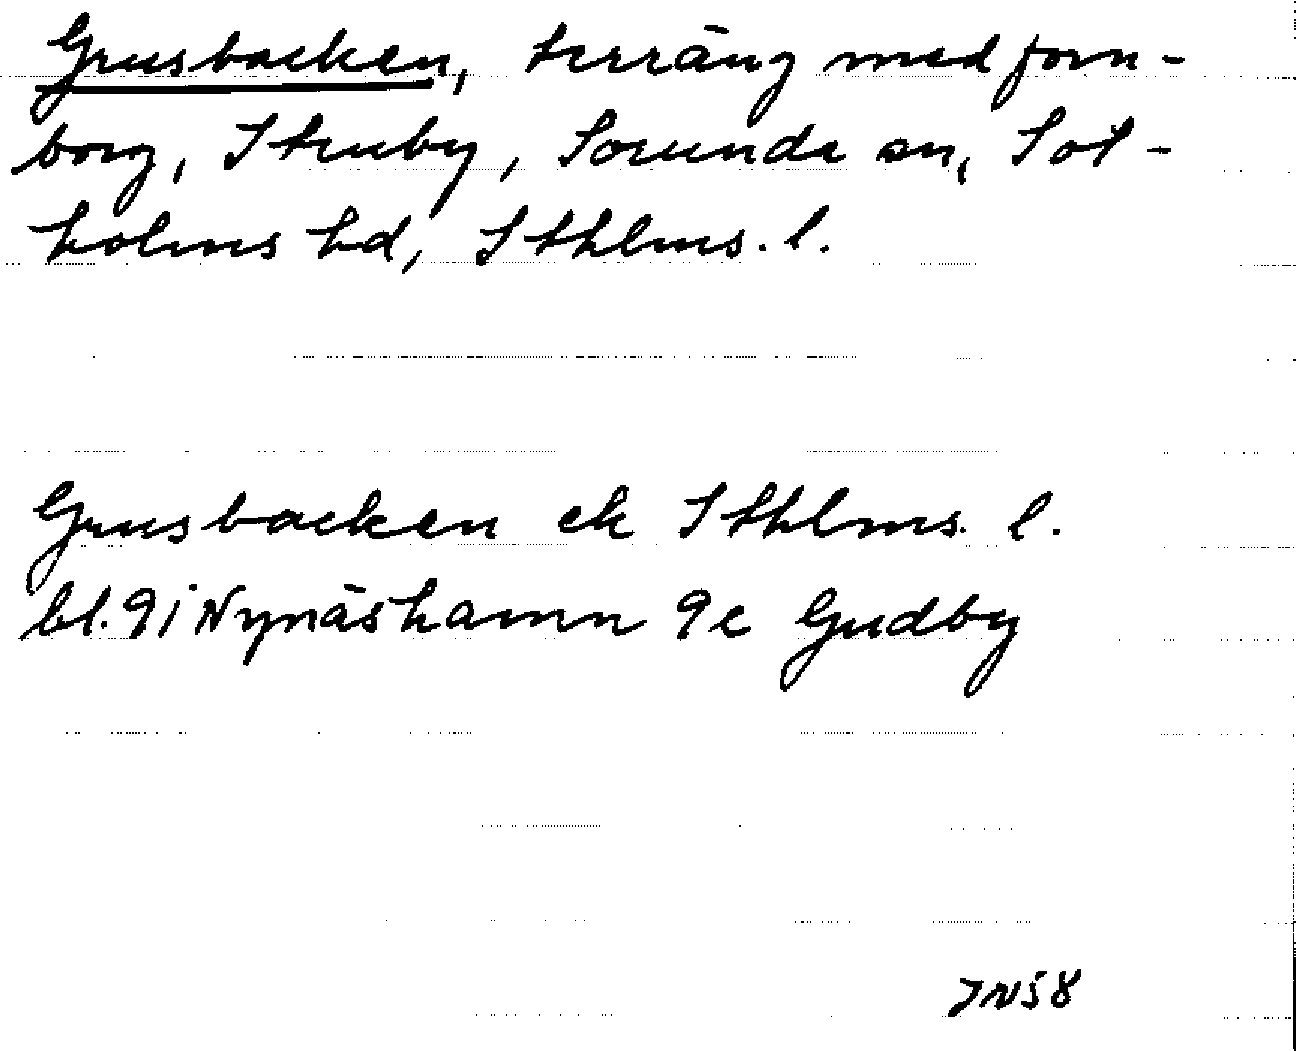 Grusbacken, terräng med forn-
borg, Struby, Sorunda sn, Sot-
holms hd, Sthlms. l.
Grusbacken ek Sthlms. l.
bl. 9i Nynäshamn 9c Gudby
JN58